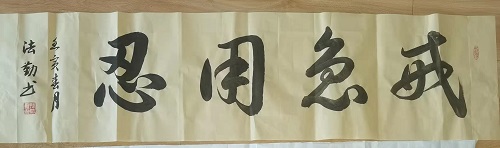 戒急用忍
壬亥春月
法勤书